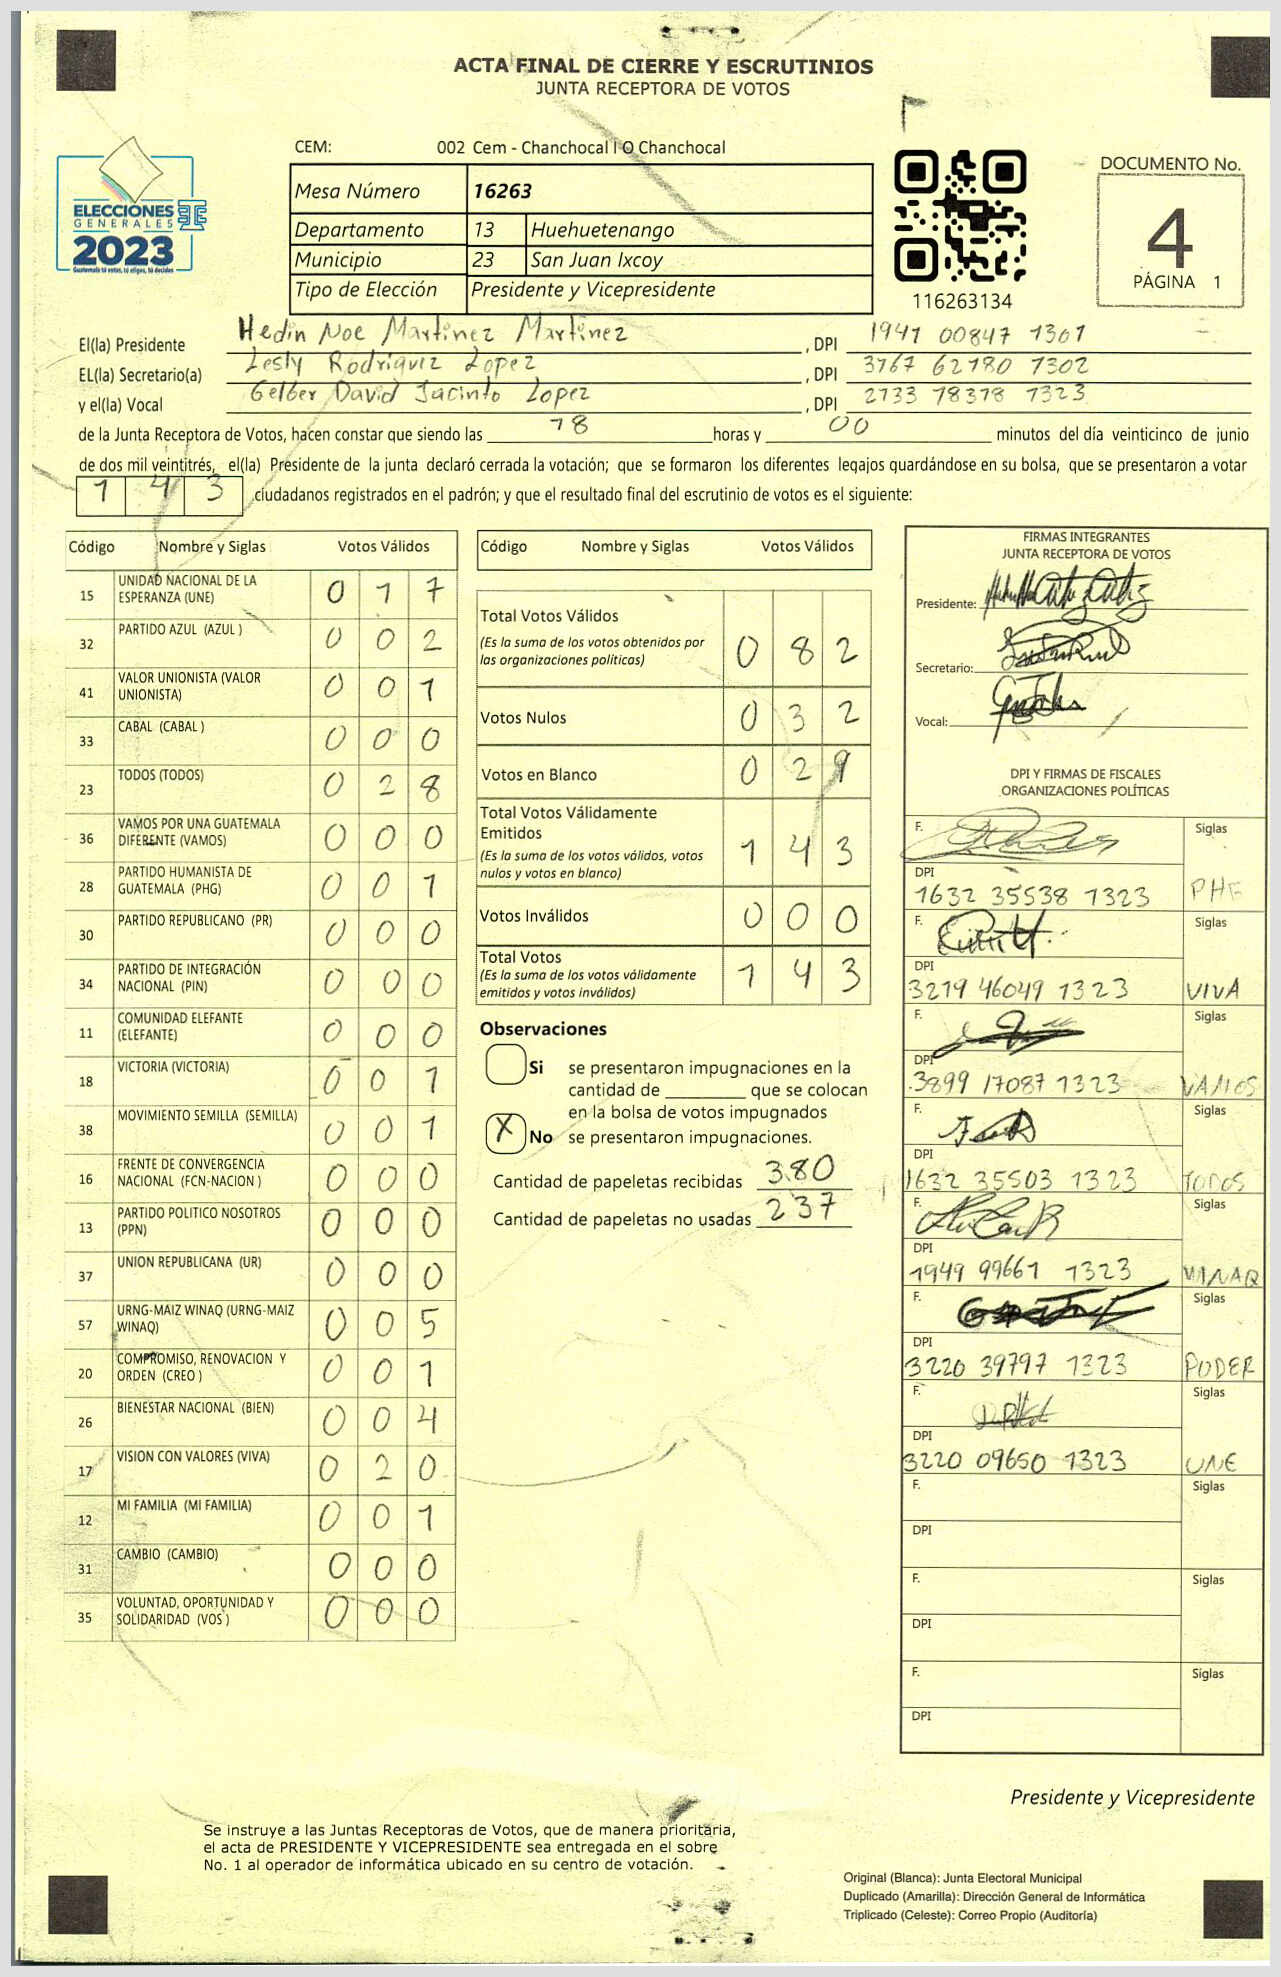 ACTA FINAL DE CIERRE Y ESCRUTINIOS
JUNTA RECEPTORA DE VOTOS
ELECCIONES
GENERALES
2023
Guatemala tú votas, tú eliges, tú decides
CEM: 002 Cem - Chanchocal I O Chanchocal
Mesa Número 16263
Departamento 13 Huehuetenango
Municipio 23 San Juan Ixcoy
Tipo de Elección Presidente y Vicepresidente
116263134
DOCUMENTO No.
4
PÁGINA 1
El(la) Presidente Hedin Noe Martinez Martinez , DPI 1941 00847 1301
EL(la) Secretario(a) Lesly Rodriguez Lopez , DPI 3767 62780 1302
y el(la) Vocal Gelber David Jacinto Lopez , DPI 2733 78378 1323
de la Junta Receptora de Votos, hacen constar que siendo las 18 horas y 00 minutos del día veinticinco de junio
de dos mil veintitrés, el(la) Presidente de la junta declaró cerrada la votación; que se formaron los diferentes legajos guardándose en su bolsa, que se presentaron a votar
143 ciudadanos registrados en el padrón; y que el resultado final del escrutinio de votos es el siguiente:
Código Nombre y Siglas Votos Válidos
15 UNIDAD NACIONAL DE LA ESPERANZA (UNE) 017
32 PARTIDO AZUL (AZUL ) 002
41 VALOR UNIONISTA (VALOR UNIONISTA) 001
33 CABAL (CABAL ) 000
23 TODOS (TODOS) 028
36 VAMOS POR UNA GUATEMALA DIFERENTE (VAMOS) 000
28 PARTIDO HUMANISTA DE GUATEMALA (PHG) 001
30 PARTIDO REPUBLICANO (PR) 000
34 PARTIDO DE INTEGRACIÓN NACIONAL (PIN) 000
11 COMUNIDAD ELEFANTE (ELEFANTE) 000
18 VICTORIA (VICTORIA) 001
38 MOVIMIENTO SEMILLA (SEMILLA) 001
16 FRENTE DE CONVERGENCIA NACIONAL (FCN-NACION ) 000
13 PARTIDO POLITICO NOSOTROS (PPN) 000
37 UNION REPUBLICANA (UR) 000
57 URNG-MAIZ WINAQ (URNG-MAIZ WINAQ) 005
20 COMPROMISO, RENOVACION Y ORDEN (CREO ) 001
26 BIENESTAR NACIONAL (BIEN) 004
17 VISION CON VALORES (VIVA) 020
12 MI FAMILIA (MI FAMILIA) 001
31 CAMBIO (CAMBIO) 000
35 VOLUNTAD, OPORTUNIDAD Y SOLIDARIDAD (VOS ) 000
Código Nombre y Siglas Votos Válidos
Total Votos Válidos
(Es la suma de los votos obtenidos por
las organizaciones políticas) 082
Votos Nulos 032
Votos en Blanco 029
Total Votos Válidamente
Emitidos
(Es la suma de los votos válidos, votos
nulos y votos en blanco) 143
Votos Inválidos 000
Total Votos
(Es la suma de los votos válidamente
emitidos y votos inválidos) 143
Observaciones
Si se presentaron impugnaciones en la
cantidad de ________ que se colocan
en la bolsa de votos impugnados
X No se presentaron impugnaciones.
Cantidad de papeletas recibidas 380
Cantidad de papeletas no usadas 237
FIRMAS INTEGRANTES
JUNTA RECEPTORA DE VOTOS
Presidente:
Secretario:
Vocal:
DPI Y FIRMAS DE FISCALES
ORGANIZACIONES POLÍTICAS
F. Siglas
DPI
1632 35538 1323 PHG
F. Siglas
DPI
3219 46049 1323 VIVA
F. Siglas
DPI
3899 17087 1323 VAMOS
F. Siglas
DPI
1632 35503 1323 TODOS
F. Siglas
DPI
1949 99661 1323 WINAQ
F. Siglas
DPI
3220 39797 1323 PODER
F. Siglas
DPI
3220 09650 1323 UNE
F. Siglas
DPI
F. Siglas
DPI
F. Siglas
DPI
Presidente y Vicepresidente
Se instruye a las Juntas Receptoras de Votos, que de manera prioritaria,
el acta de PRESIDENTE Y VICEPRESIDENTE sea entregada en el sobre
No. 1 al operador de informática ubicado en su centro de votación.
Original (Blanca): Junta Electoral Municipal
Duplicado (Amarilla): Dirección General de Informática
Triplicado (Celeste): Correo Propio (Auditoría)